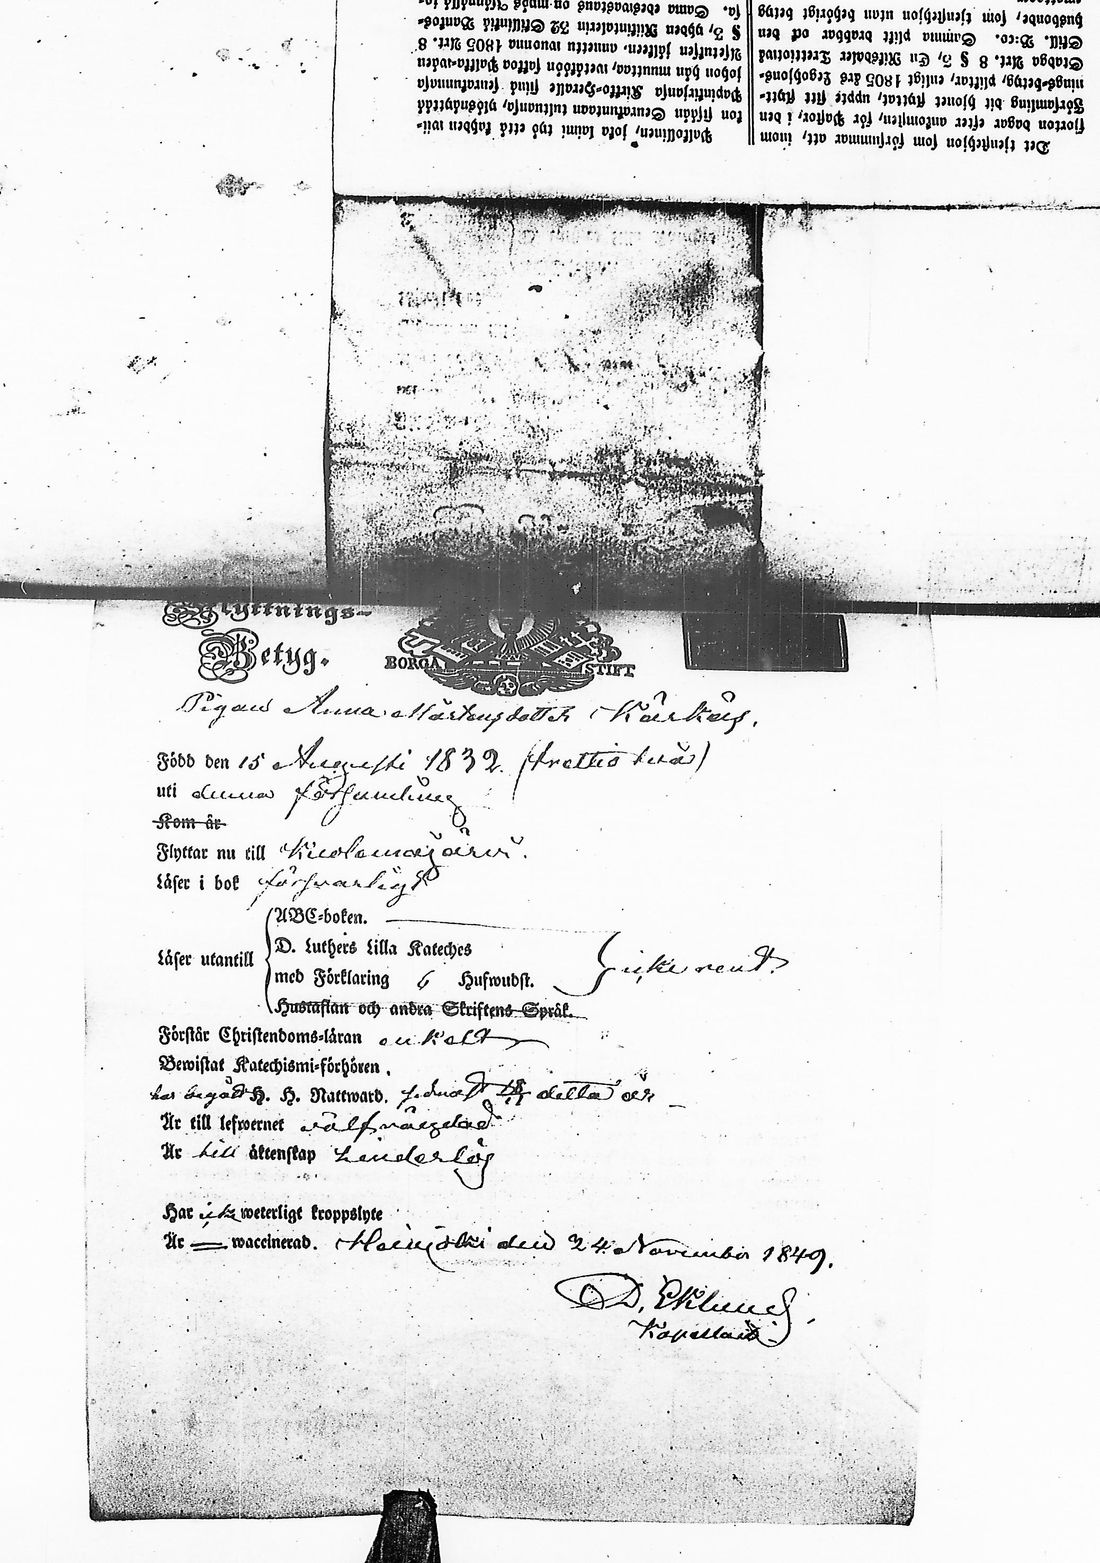 Det tjenstehjon som försummar att, inom
fjorton dagar efter ankomsten, för Pastor, i den
Församling dit hjonet flyttat, uppte sitt flytt-
nings-betyg, pliktar, enligt 1805 åre Legohjons-
Stadga Art. 8 § 3, En Riksdaler Trettiotwå
Skill. B:co. Samma plikt drabbar ock den
husbonde, som tjenstehjon utan behörigt betyg
Palkollinen, joka laimi lyö että kahden wii-
kon sisään
Papinkirjansa Kirkko-Herralle siinä seurakunnassa
johon hän muuttaa, wetäköön sakkoa Palkka-wäen
Asetuksen jälkeen, annettu wuonna 1805 Art. 8
§ 3, yhden Riksitalerin 32 Skillinkiä Banko-
sa. Sama edeswastaus on myös Isännällä jo-
Flyttnings-
Betyg.
BORGÅ STIFT
Pigan Anna Mårtensdotter Kärkäs.
Född den 15 Augusti 1832. (trettio två)
uti denna församling
Kom år
Flyttar nu till Kuolemajärvi.
Läser i bok försvarligt
ABC-boken.
Läser utantill D. Luthers Lilla Kateches
med Förklaring 6 Hufwudst. icke rent.
Hustaflan och andra Skriftens Språk.
Förstår Christendoms-läran enkelt
Bewistat Katechismi-förhören.
har begått H. H. Nattward. sednast detta år
Är till lefwernet välfrägdad
Är till äktenskap hinderlös
Har icke weterligt kroppslyte
Är waccinerad. Heinjoki den 24 November 1849.
D. Eklund,
Kapellan.